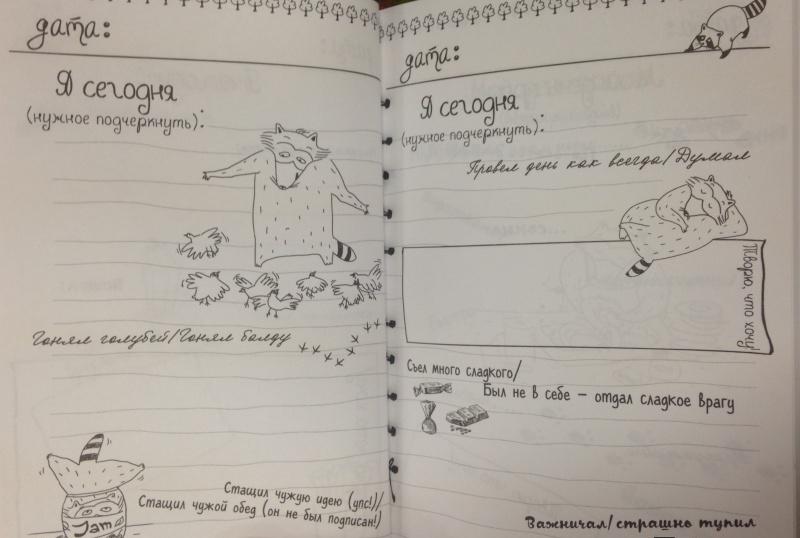 дата:
Я сегодня
(нужное подчеркнуть):
Гонял голубей/Гонял балду
Стащил чужую идею (упс!)/
Стащил чужой обед (он не был подписан!)
Jam
дата:
Я сегодня
(нужное подчеркнуть):
Провел день как всегда/Думал
Творю, что хочу
Съел много сладкого/
Был не в себе – отдал сладкое врагу
Важничал/страшно тупил